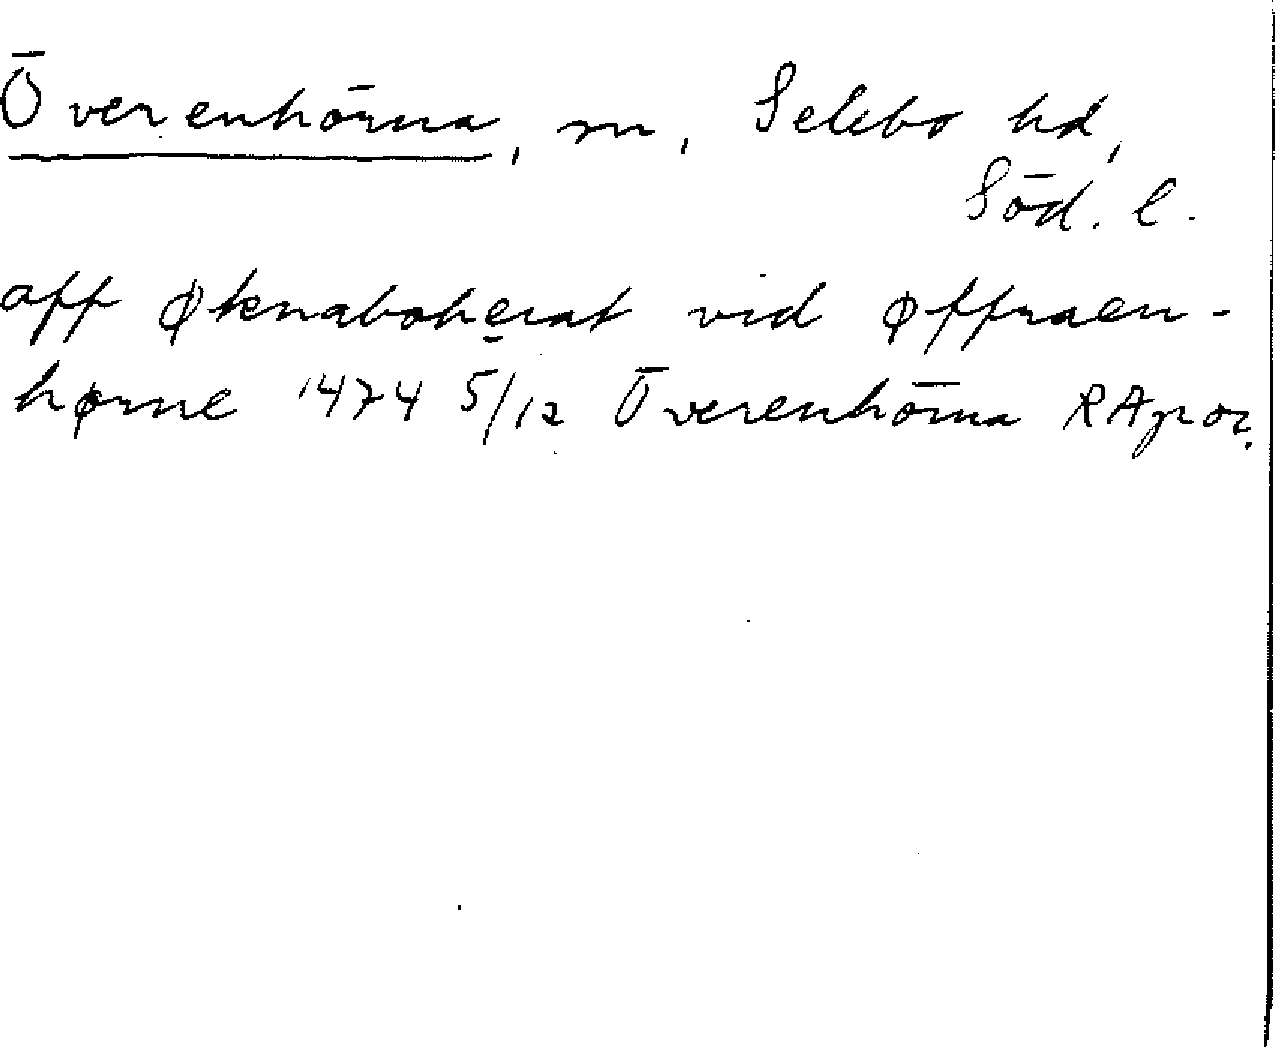 Överenhörna, sn, Selebo hd,
Söd. l.
aff øknaboherat vid øffraen-
hørne 1474 5/12 Överenhörna RAp or.